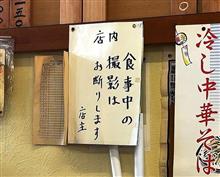 店内
食事中の
撮影は
お断りします
店主
冷し中華そば